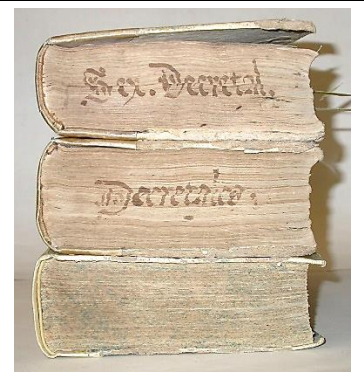 Sex. Decretal.
Decretales.